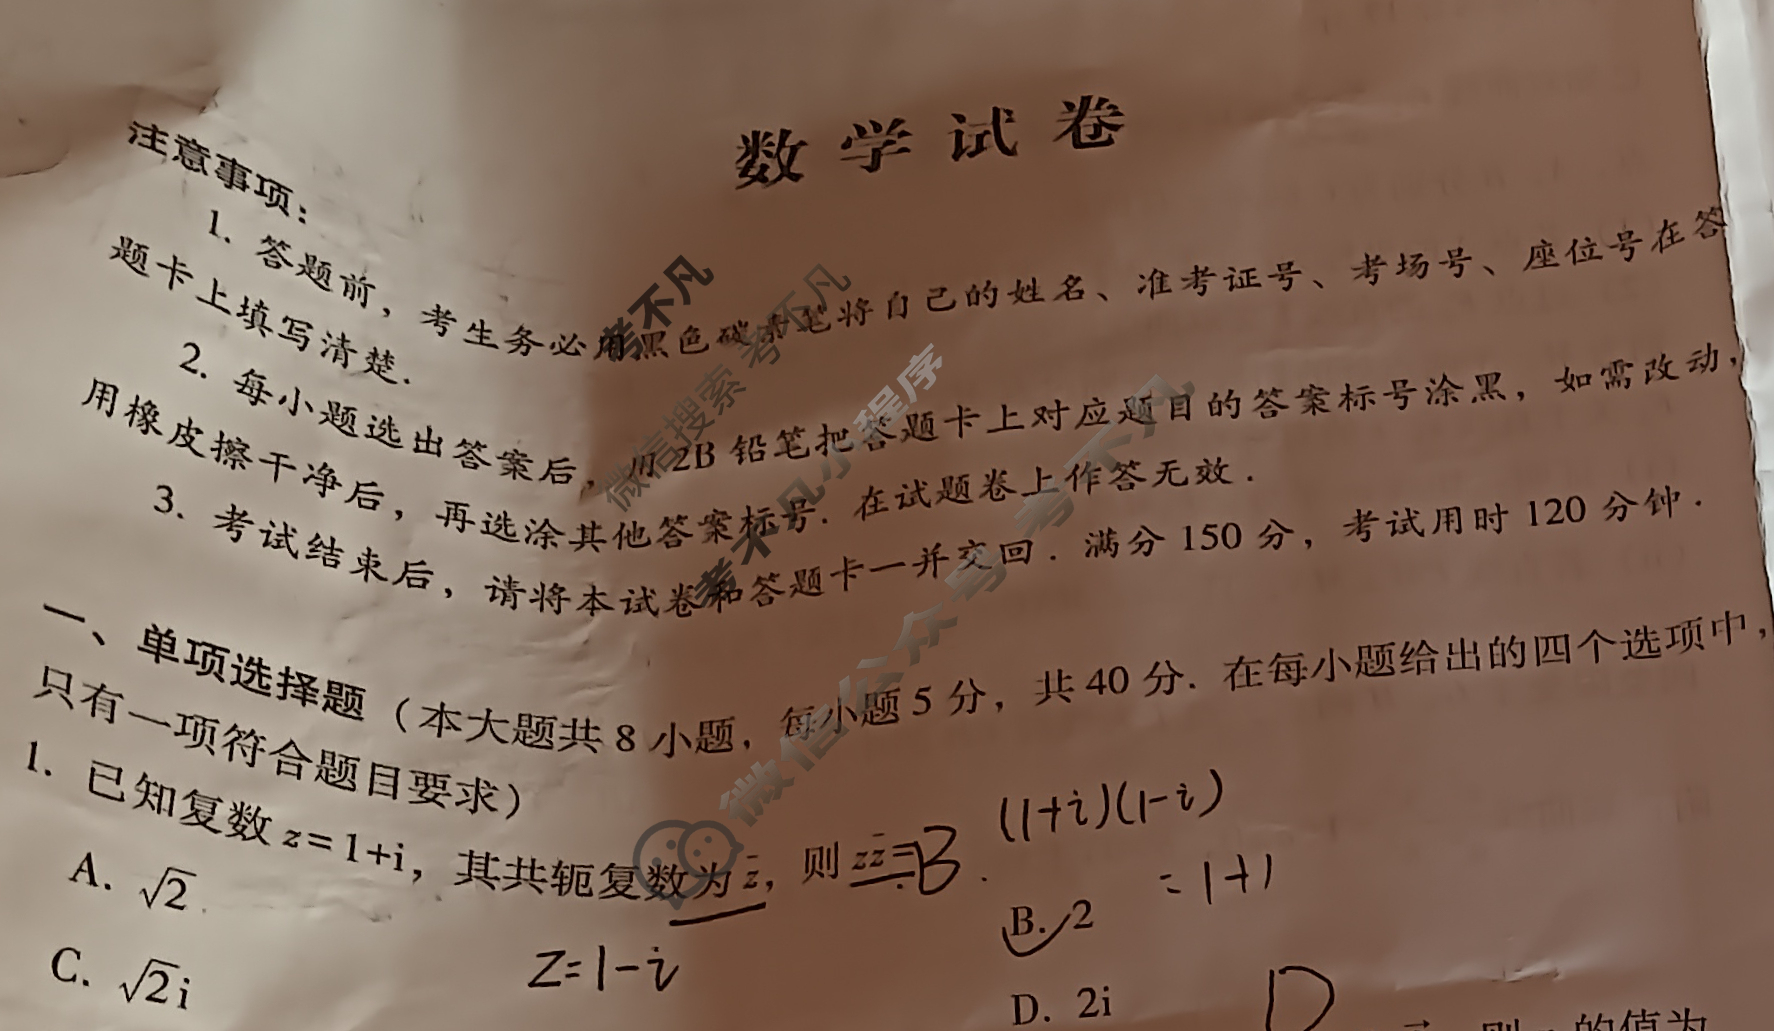 数学试卷
注意事项：
1. 答题前，考生务必用黑色碳素笔将自己的姓名、准考证号、考场号、座位号在答
题卡上填写清楚．
2. 每小题选出答案后，用 2B 铅笔把答题卡上对应题目的答案标号涂黑，如需改动，
用橡皮擦干净后，再选涂其他答案标号．在试题卷上作答无效．
3. 考试结束后，请将本试卷和答题卡一并交回．满分 150 分，考试用时 120 分钟．
一、单项选择题（本大题共 8 小题，每小题 5 分，共 40 分．在每小题给出的四个选项中，
只有一项符合题目要求）
1. 已知复数 z=1+i，其共轭复数为 z̄，则 zz̄= B
(1+i)(1-i)
=1+1
A. √2
B. 2
C. √2i
D. 2i
Z=1-i
D
则
的值为
考不凡
微信搜索 考不凡
考不凡小程序
微信公众号 考不凡